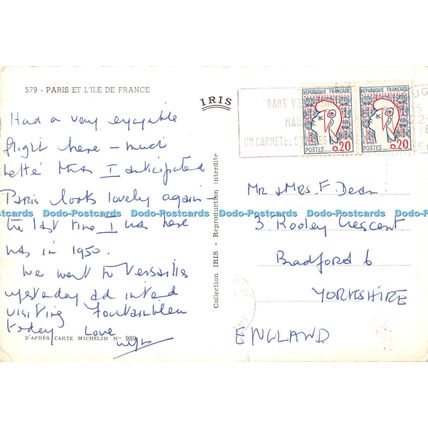 579 - PARIS ET L'ILE DE FRANCE
Had a very enjoyable
flight here - much
better than I anticipated
Paris looks lovely again -
the last time I was here
was in 1950.
We went to Versailles
yesterday and intend
visiting Fontainbleu
today Love
D'APRÈS CARTE MICHELIN N° 989
IRIS
Collection IRIS - Reproduction interdite
DANS V
UN CARNET DE C
REPUBLIQUE FRANÇAISE
POSTES 0,20
REPUBLIQUE FRANÇAISE
POSTES 0,20
Mr & Mrs. F. Dean
3 Rooley Crescent
Bradford 6
YORKSHIRE
ENGLAND
Dodo-Postcards Dodo-Postcards Dodo-Postcards Dodo-Postcards